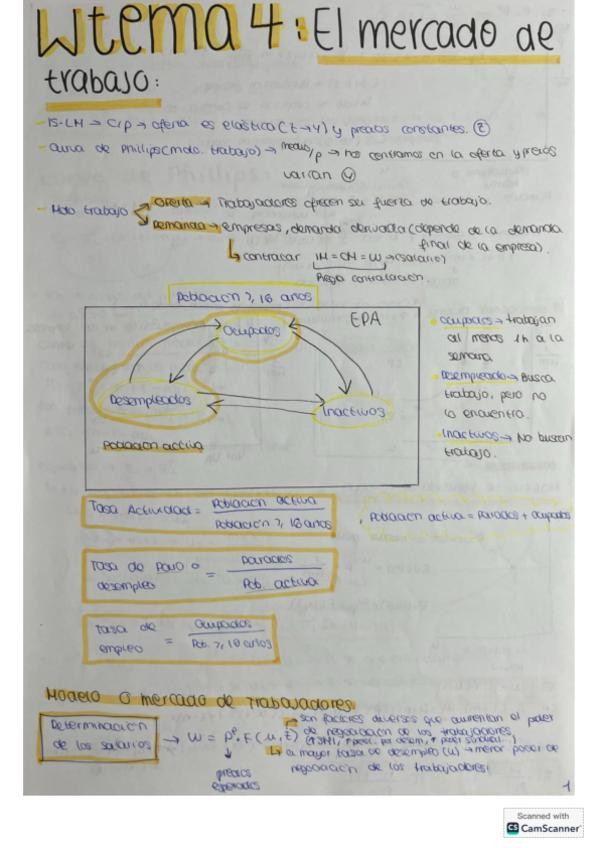 W tema 4: El mercado de
trabajo:
- IS-LM → C/p → oferta es elástica (t→Y) y precios constantes.
- Curva de Phillips (mdo. trabajo) → medio/p → nos centramos en la oferta y precios
varían
- Mdo trabajo
Oferta → Trabajadores ofrecen su fuerza de trabajo.
Demanda → empresas, demanda derivada (depende de la demanda
final de la empresa).
contratar IM = CM = W → (salario)
Regla contratación
Población ≥ 16 años
EPA
Ocupados
Desempleados
Inactivos
Población activa
Ocupados → trabajan
al menos 1h a la
semana
Desempleado → Busca
trabajo, pero no
lo encuentro.
Inactivos → No buscan
trabajo.
Tasa Actividad = Población activa
Población ≥ 16 años
, Población activa = Parados + Ocupados
Tasa de paro o
desempleo
= parados
Pob. activa
Tasa de
empleo
= Ocupados
Pob. ≥ 16 años
Modelo o mercado de Trabajadores
Determinación
de los salarios
→ W = Pᵉ · F(u, z)
precios
esperados
son factores diversos que aumentan el poder
de negociación de los trabajadores
a mayor tasa de desempleo (u) → menor poder de
negociación de los trabajadores
1
Scanned with
CS CamScanner